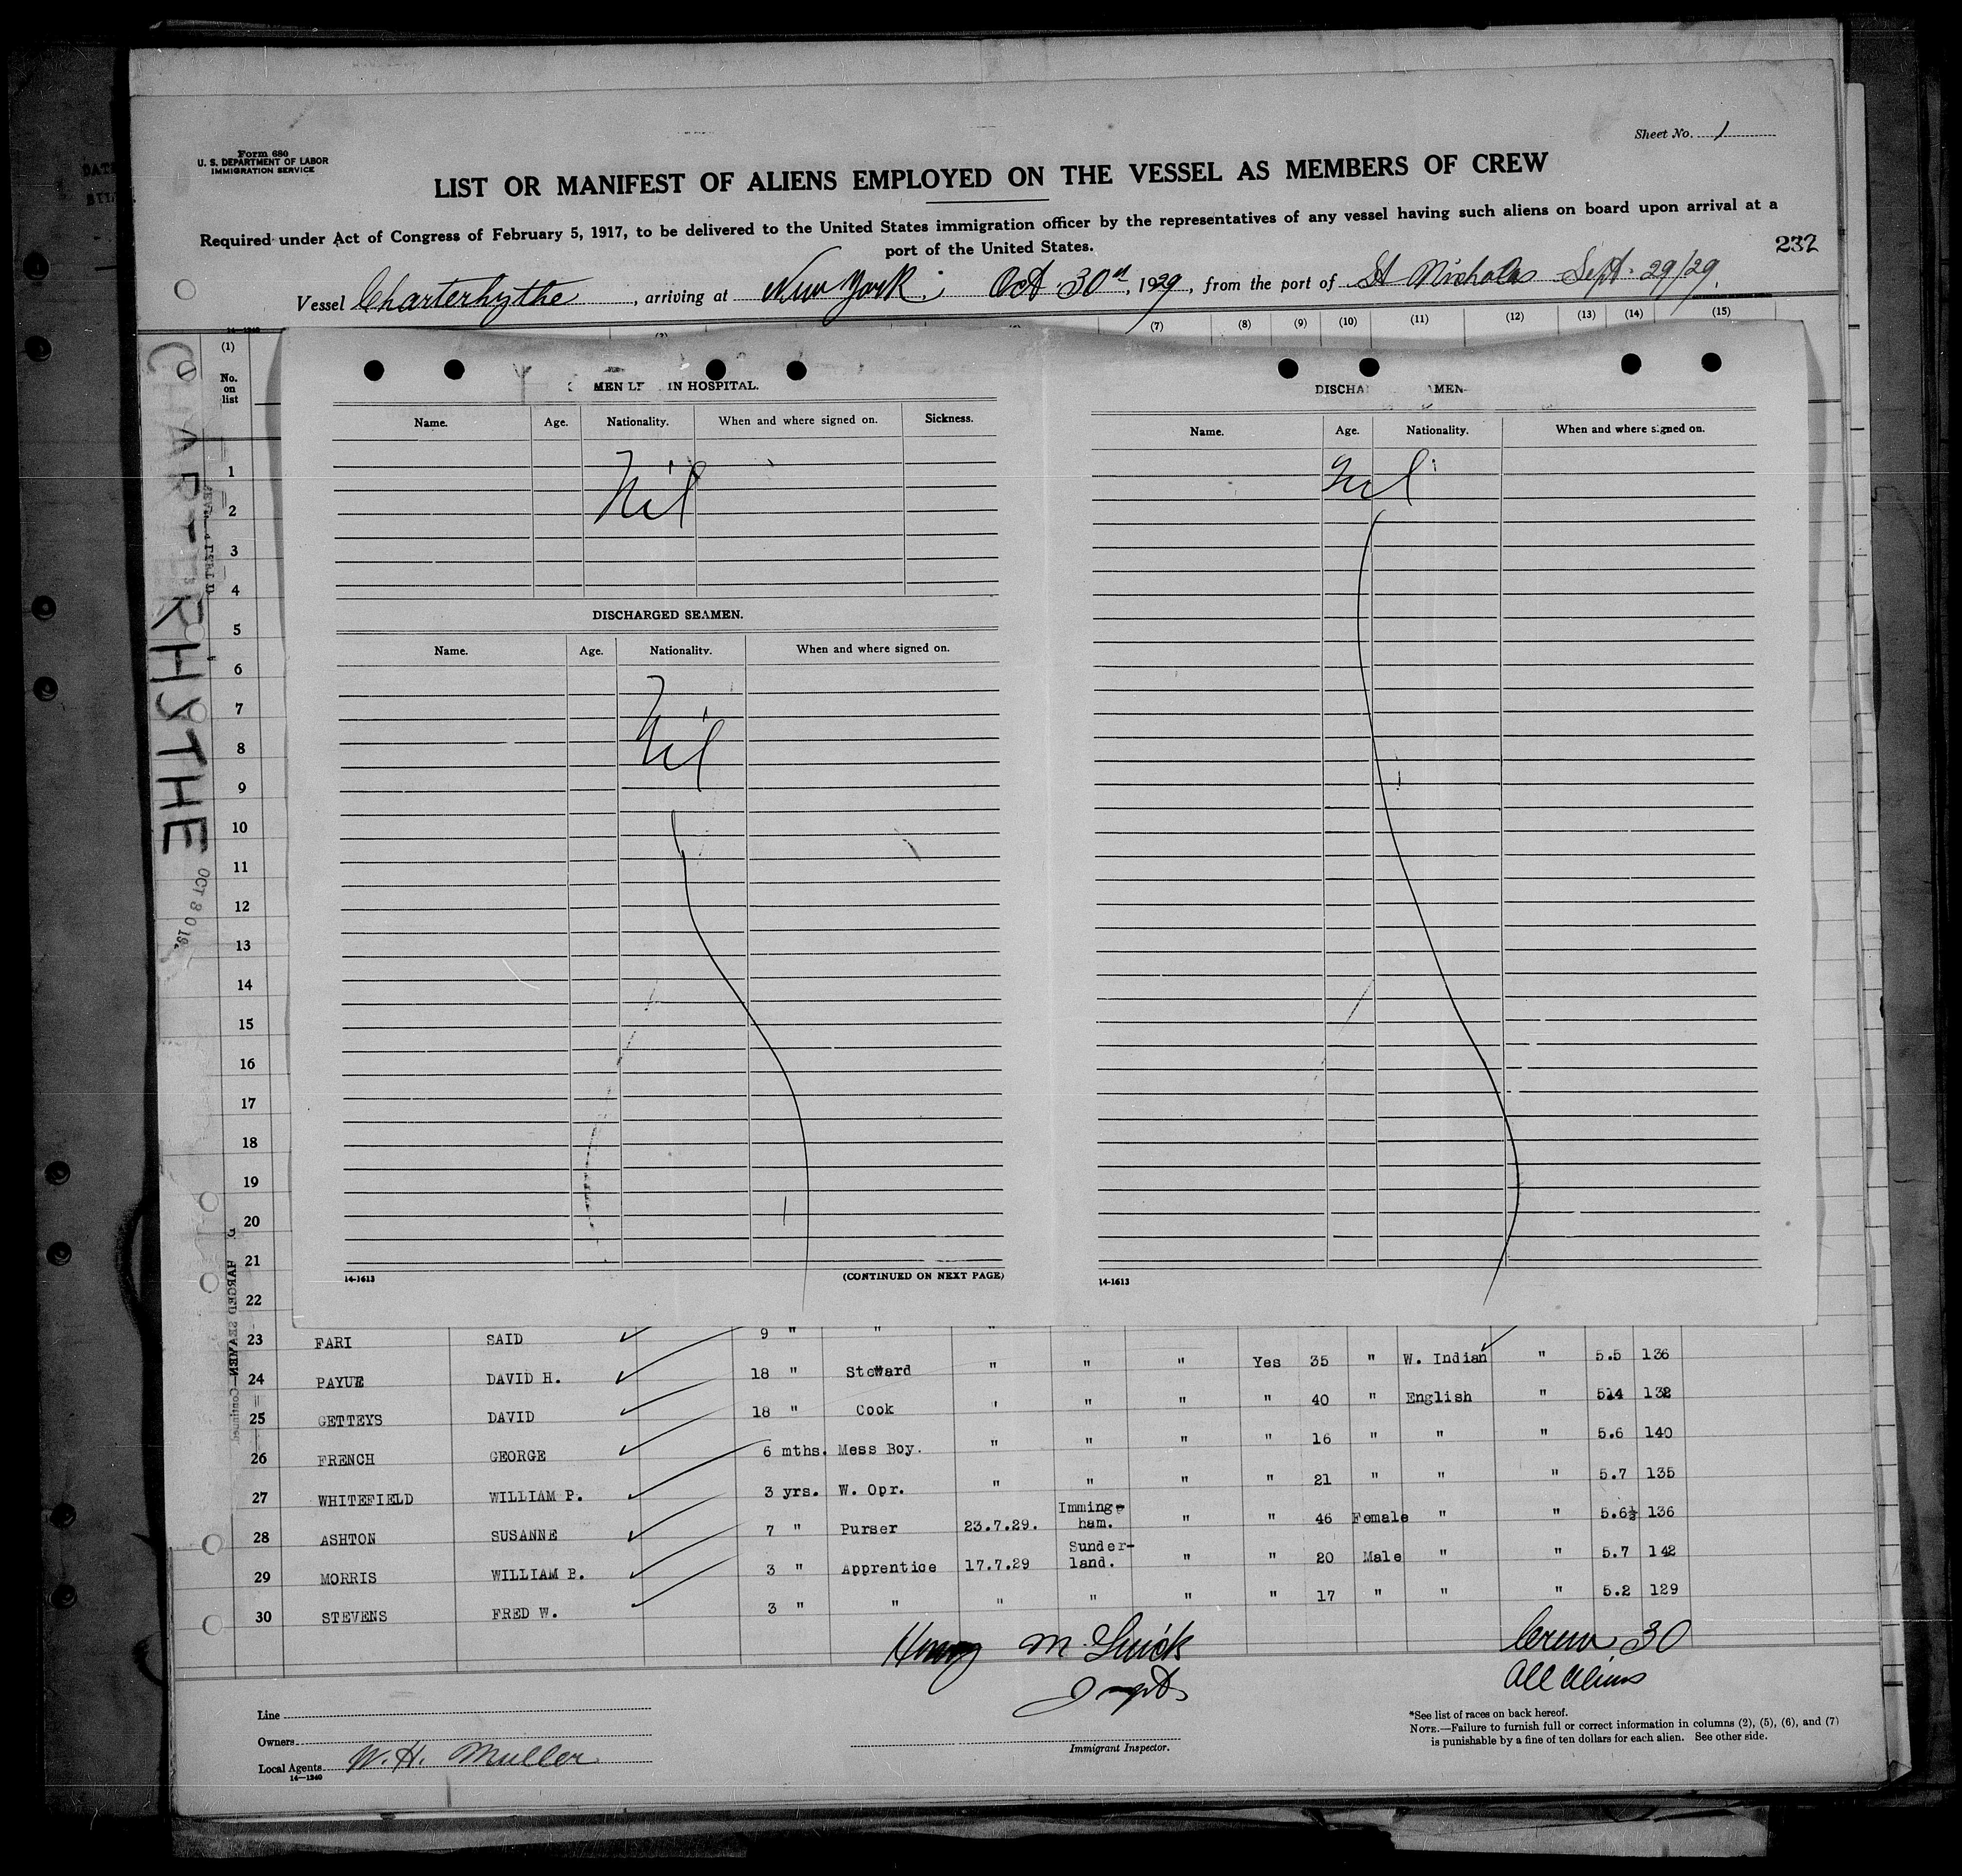 Sheet No. 1
Form 680
U. S. DEPARTMENT OF LABOR
IMMIGRATION SERVICE
LIST OR MANIFEST OF ALIENS EMPLOYED ON THE VESSEL AS MEMBERS OF CREW
Required under Act of Congress of February 5, 1917, to be delivered to the United States immigration officer by the representatives of any vessel having such aliens on board upon arrival at a
port of the United States.
232
Vessel Charterhythe, arriving at New York; Oct 30th, 1929, from the port of St Nicholas Sept. 29/29.
(1) (7) (8) (9) (10) (11) (12) (13) (14) (15)
No. on list
CHARTERHYTHE
OCT 30 19
MEN IN HOSPITAL.
Name. Age. Nationality. When and where signed on. Sickness.
Nil
DISCHARGED SEAMEN.
Name. Age. Nationality. When and where signed on.
Nil
14-1613 (CONTINUED ON NEXT PAGE)
Name. Age. Nationality. When and where signed on.
Nil
14-1613
1
2
3
4
5
6
7
8
9
10
11
12
13
14
15
16
17
18
19
20
21
22
23 FARI SAID 9 " "
24 PAYUE DAVID H. 18 " Steward " " " Yes 35 " W. Indian " 5.5 136
25 GETTEYS DAVID 18 " Cook ' " " " 40 " English " 5.4 132
26 FRENCH GEORGE 6 mths. Mess Boy. " " " " 16 " " " 5.6 140
27 WHITEFIELD WILLIAM P. 3 yrs. W. Opr. " " " " 21 " " " 5.7 135
28 ASHTON SUSANNE 7 " Purser 23.7.29. Imming-ham. " " 46 Female " " 5.6½ 136
29 MORRIS WILLIAM B. 3 " Apprentice 17.7.29 Sunder-land. " " 20 Male " " 5.7 142
30 STEVENS FRED W. 3 " " " " " " 17 " " " 5.2 129
Crew 30
All Aliens
Line
Owners
Local Agents W. H. Muller
14-1240
Immigrant Inspector.
*See list of races on back hereof.
NOTE.—Failure to furnish full or correct information in columns (2), (5), (6), and (7)
is punishable by a fine of ten dollars for each alien. See other side.